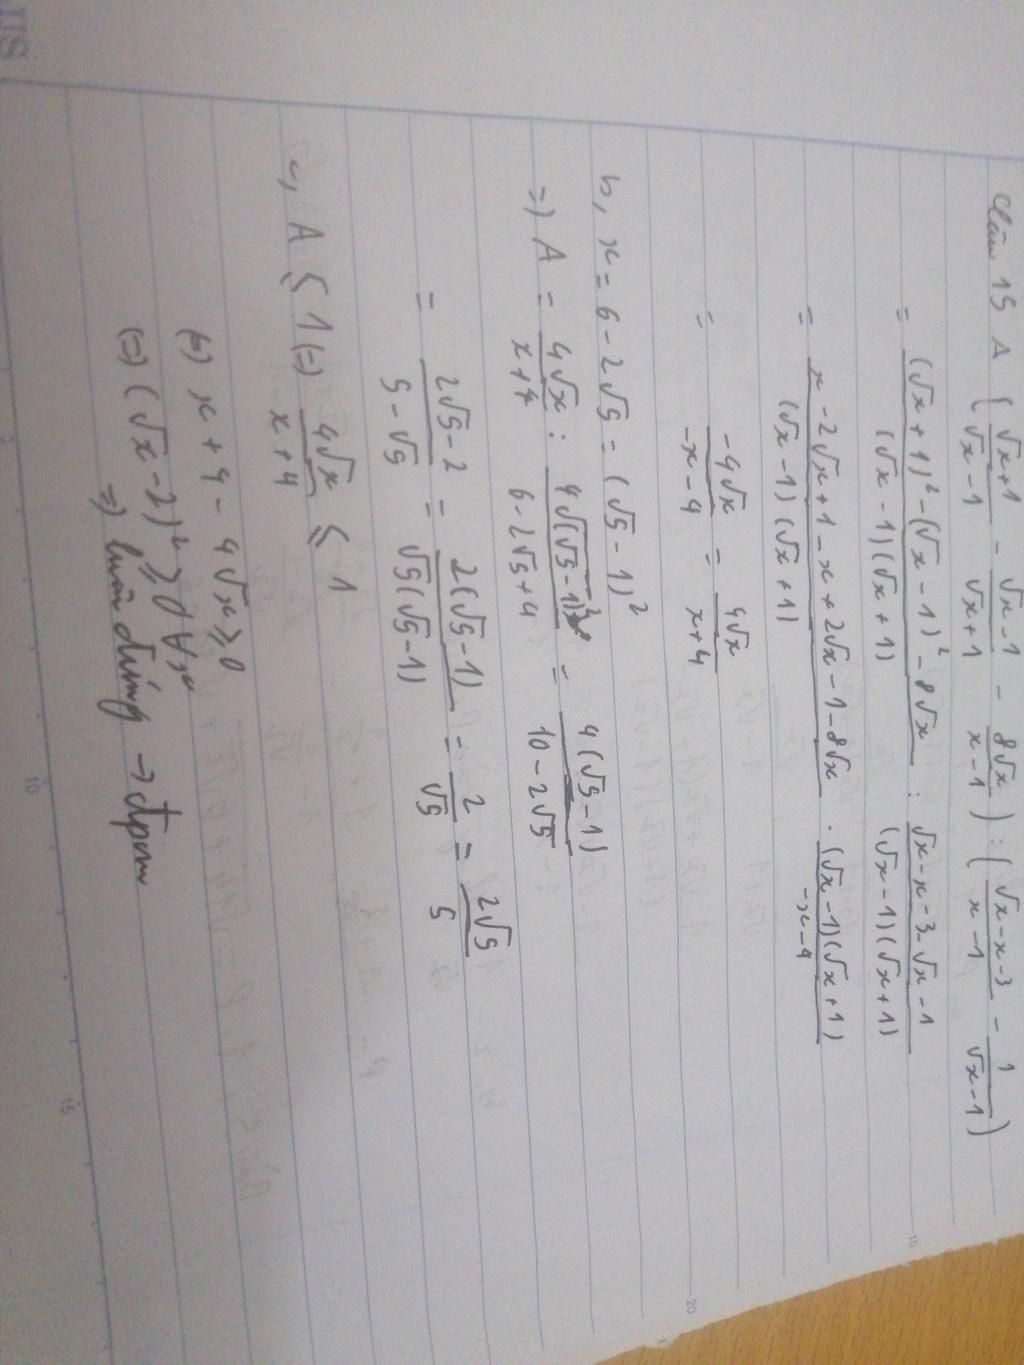 Câu 15 A ( √x+1 / √x-1 - √x-1 / √x+1 - 8√x / x-1 ) : ( √x-x-3 / x-1 - 1 / √x-1 )
= (√x+1)² - (√x-1)² - 8√x / (√x-1)(√x+1) : √x-x-3-√x-1 / (√x-1)(√x+1)
= x-2√x+1-x+2√x-1-8√x / (√x-1)(√x+1) . (√x-1)(√x+1) / -x-4
= -4√x / -x-4 = 4√x / x+4
b, x = 6-2√5 = (√5-1)²
=) A = 4√x / x+4 : 4√(√5-1)² / 6-2√5+4 = 4(√5-1) / 10-2√5
= 2√5-2 / 5-√5 = 2(√5-1) / √5(√5-1) = 2 / √5 = 2√5 / 5
c, A ≤ 1 (=) 4√x / x+4 ≤ 1
(=) x+4-4√x ≥ 0
(=) (√x-2)² ≥ 0 ∀x
=) luôn đúng → đpcm
US
10
15
15
20